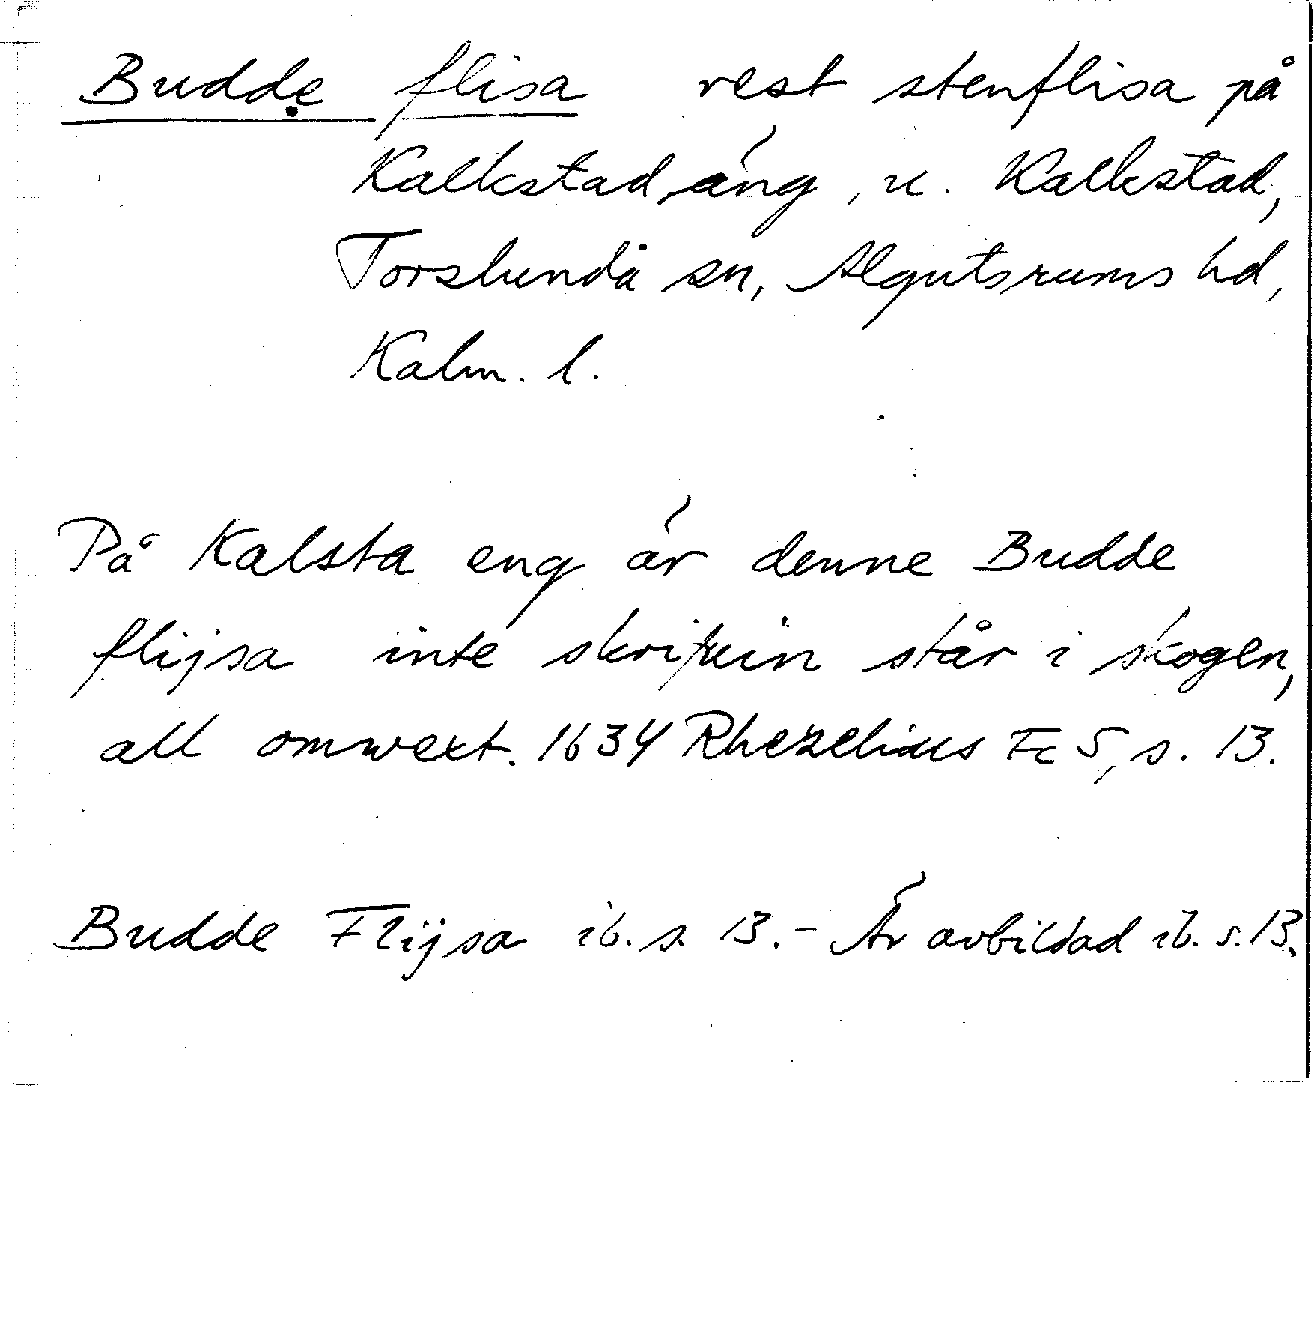 Budde flisa rest stenflisa på
Kalkstad äng, u. Kalkstad,
Torslunda sn, Algutsrums hd,
Kalm. l.
På Kalsta eng är denne Budde
flijsa inte skrifuin står i skogen,
all omwext. 1634 Rhezelius Fc 5, s. 13.
Budde Flijsa ib. s. 13. - Är avbildad ib. s. 13.